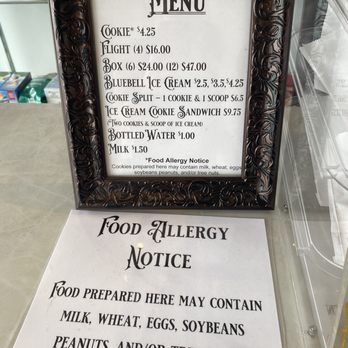 Menu
Cookie* $4.25
Flight (4) $16.00
Box (6) $24.00 (12) $47.00
Bluebell Ice Cream $2.5, $3.5, $4.25
Cookie Split - 1 cookie & 1 scoop $6.5
Ice Cream Cookie Sandwich $9.75
(*Two cookies & scoop of ice cream)
Bottled Water $1.00
Milk $1.50
*Food Allergy Notice
Cookies prepared here may contain milk, wheat, eggs
soybeans peanuts, and/or tree nuts.
Food Allergy
Notice
Food prepared here may contain
milk, wheat, eggs, soybeans
peanuts, and/or